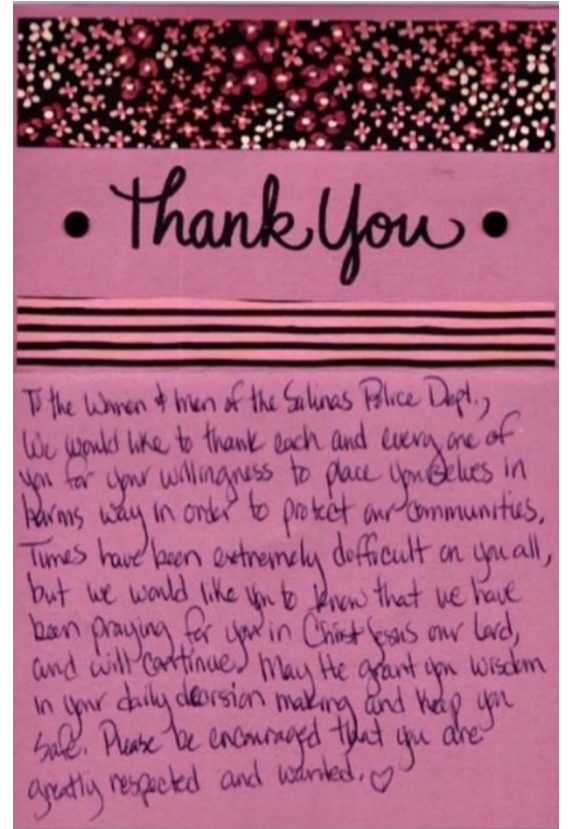 Thank You
To the Women & men of the Salinas Police Dept.,
We would like to thank each and every one of
you for your willingness to place yourselves in
harms way in order to protect our communities.
Times have been extremely difficult on you all,
but we would like you to know that we have
been praying for you in Christ Jesus our Lord,
and will continue. May He grant you wisdom
in your daily decision making and keep you
safe. Please be encouraged that you are
greatly respected and wanted. ♡